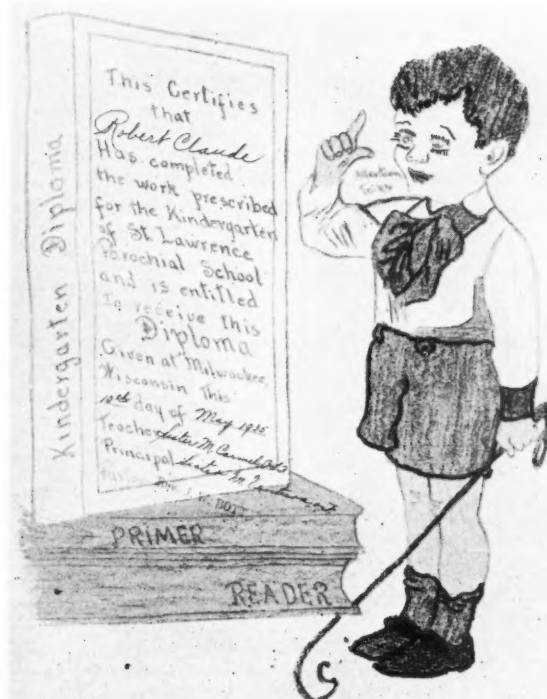 Kindergarten Diploma
This Certifies
that
Robert Claude
Has completed
the work prescribed
for the Kindergarten
of St. Lawrence
Parochial School
and is entitled
To receive this
Diploma
Given at Milwaukee,
Wisconsin This
10th day of May 1935
Teacher Sister M.
Principal Sister M.
PRIMER
READER